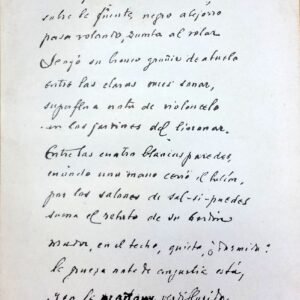 sobre la fuente, negro abejorro
pasa volando, zumba al volar
Sonó su bronco gruñir de abuelo
entre las claras voces sonar,
superflua nota de violoncelo
en los jardines del limonar.
Entre las cuatro blancas paredes,
cuando una mano cerró el balcón,
por los salones de sal-si-puedes
suena el rebato de su bordón
Muda, en el techo, quieta, ¿dormida?
la gruesa nota de angustia está,
y en la mañana verdiflorida